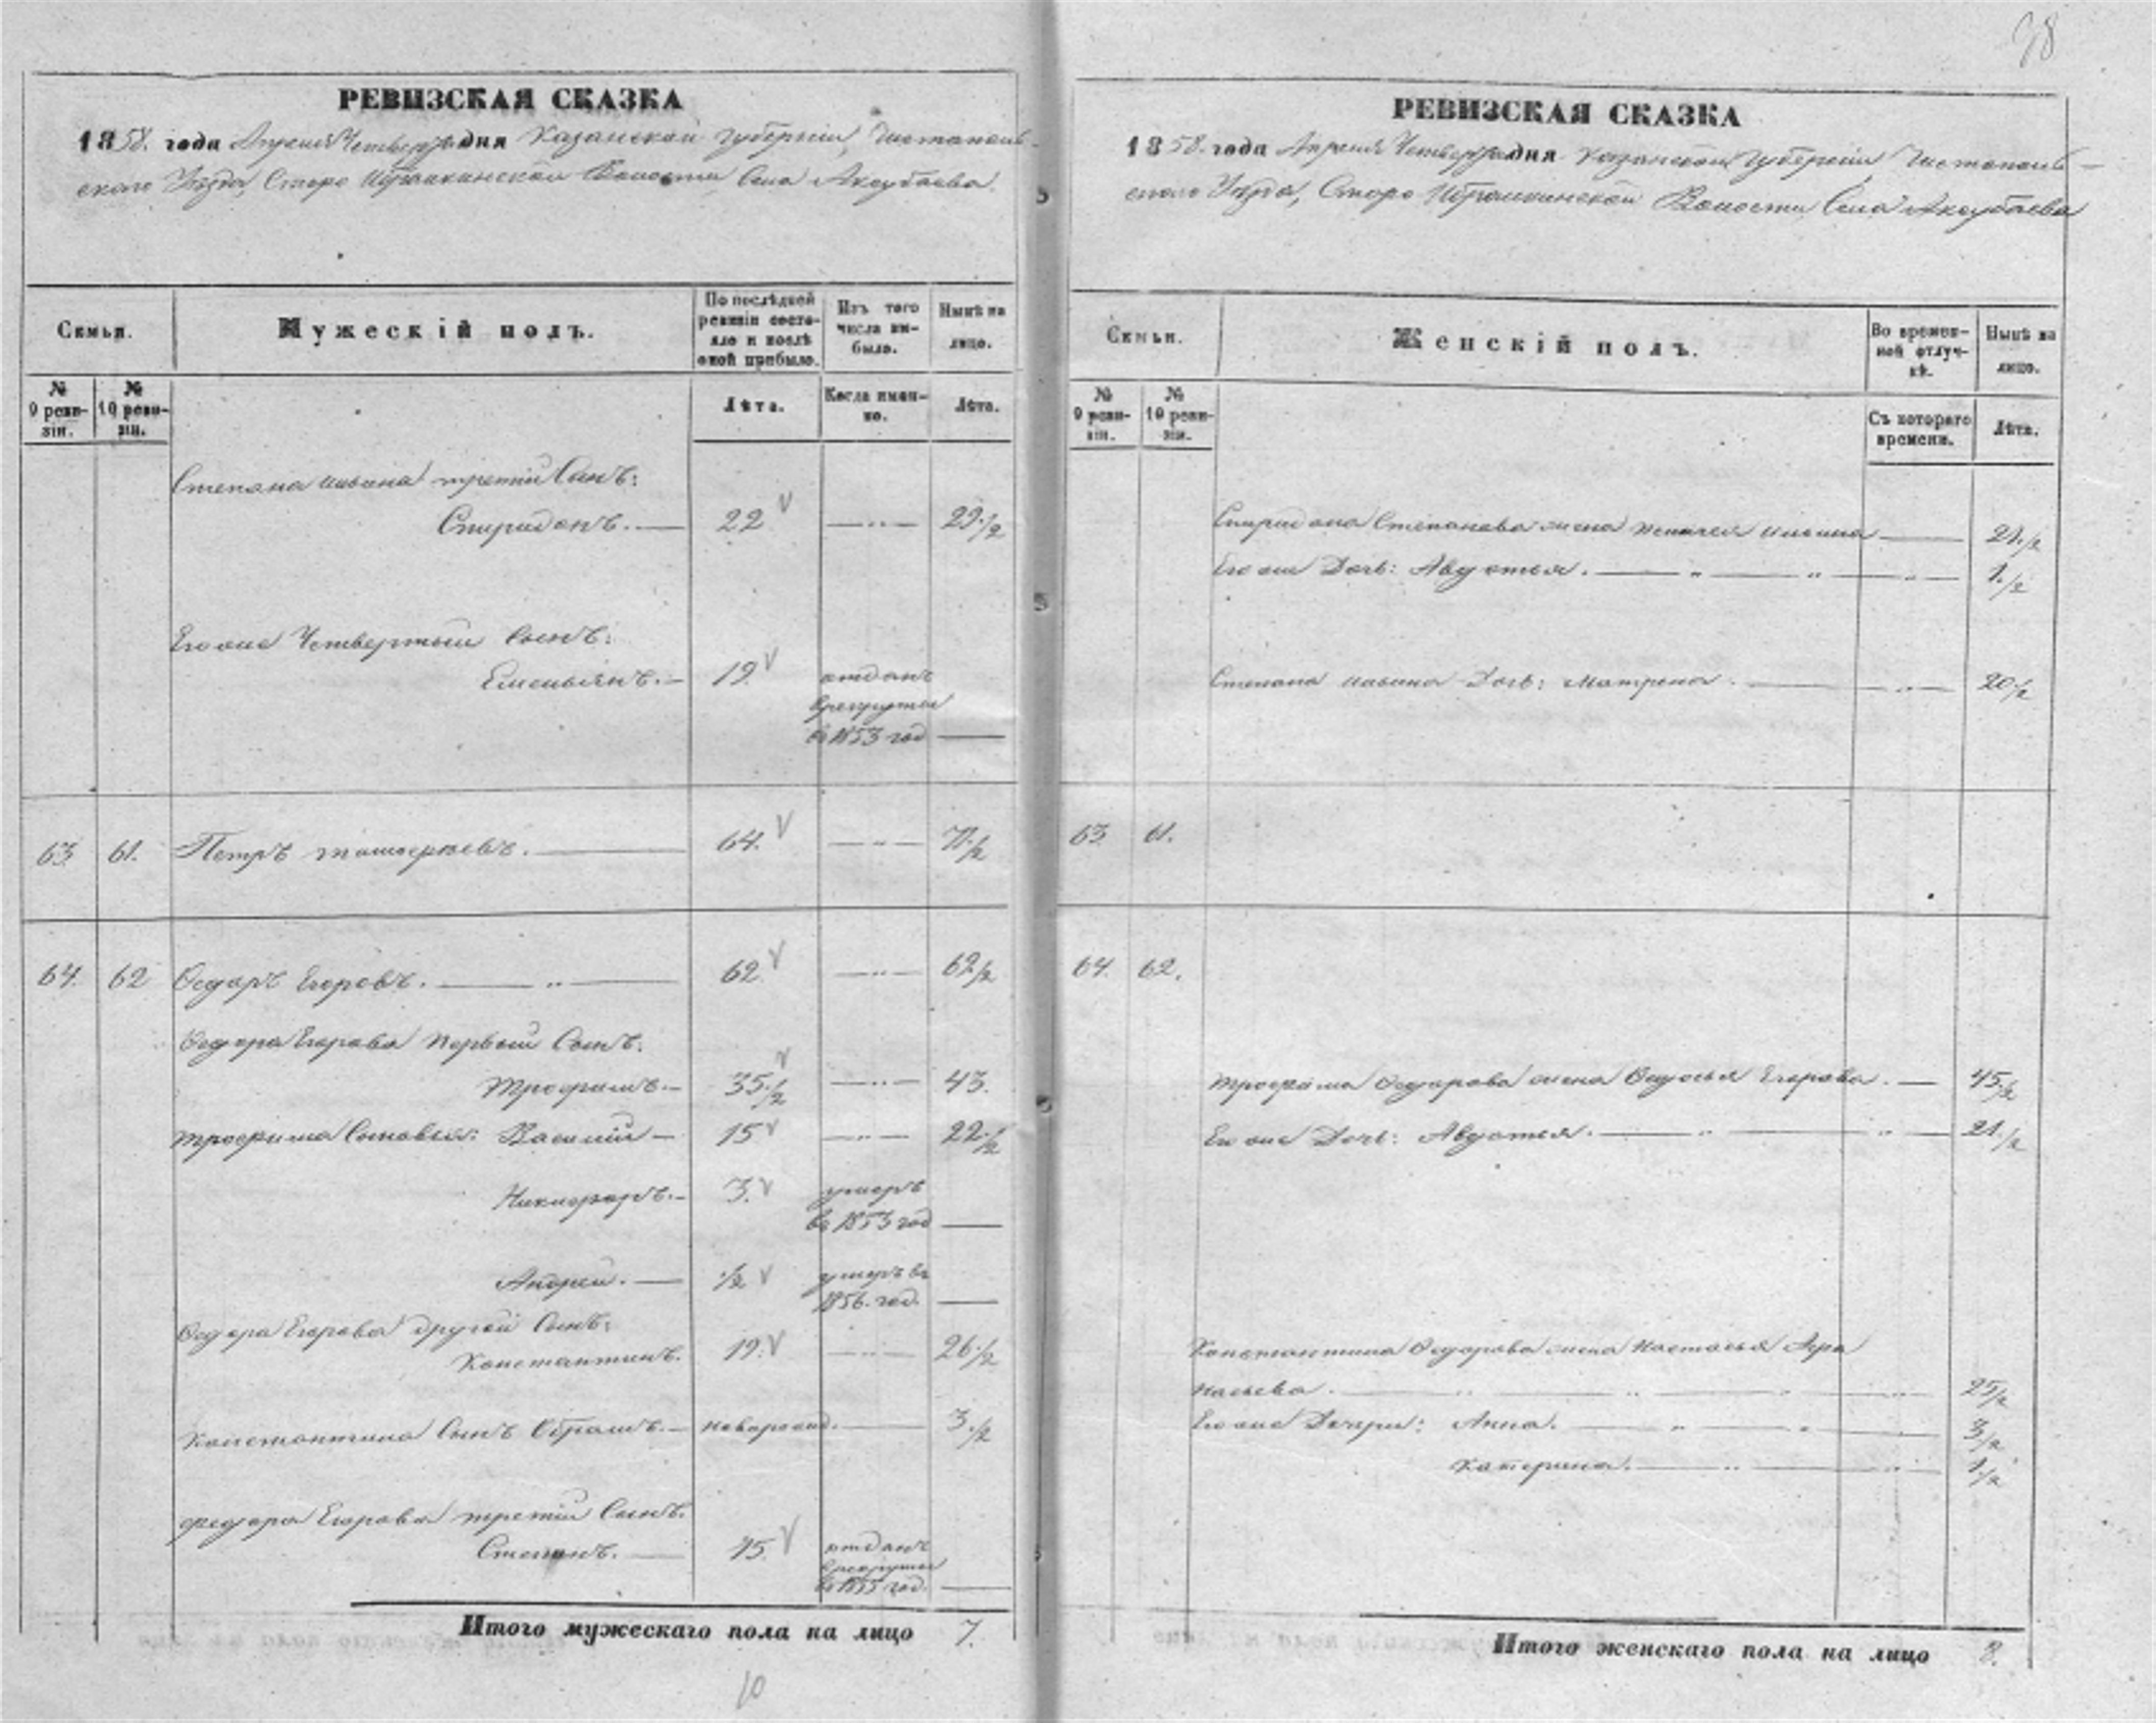 38
РЕВИЗСКАЯ СКАЗКА
1858. года Апреля Четвертго дня Казанской губернии, Чистополь-
скаго Уезда, Старо Ибрайкинской Волости Села Аксубаева.
Семьи.
Мужескій полъ.
По послѣдней ревизіи состо-яло и послѣ оной прибыло.
Изъ того числа вы-было.
Нынѣ на лицо.
№ 9 реви-зіи.
№ 10 реви-зіи.
Лѣта.
Когда имен-но.
Лѣта.
Степана Ильина третий Сынъ:
Спиридонъ. 22 29 1/2
Его же Четвертый Сынъ:
Емельянъ. 19 отданъ
в рекруты
в 1853 год
63 61. Петръ 64. 71 1/2
64. 62 Ѳедоръ Егоровъ. 62 62 1/2
Ѳедора Егорова Первый Сынъ:
Трофимъ. 35 1/2 43.
Трофима Сыновья: Василий 15 22 1/2
Никифоръ. 3. умеръ
в 1853 год
Андрей. 1/2 умеръ в
1856. год.
Ѳедора Егорова другой Сынъ:
Константинъ. 19. 26 1/2
Константина Сынъ Абрамъ. новорожд. 3 1/2
Федора Егорова третий Сынъ.
Степанъ. 15. отданъ
в рекруты
в 1855 год.
Итого мужескаго пола на лицо 7.
10
РЕВИЗСКАЯ СКАЗКА
1858. года Апреля Четвертго дня Казанской Губернии Чистополь-
скаго Уезда, Старо Ибрайкинской Волости Села Аксубаева
Семьи.
Женскій полъ.
Во времен-ной отлуч-кѣ.
Нынѣ на лицо.
№ 9 реви-зіи.
№ 10 реви-зіи.
Съ котораго времени.
Лѣта.
Спиридона Степанова жена Ильина
Его же Дочь: Авдотья. 1 1/2
Степана Ильина Дочь: Матрена. 20 1/2
63 61.
64. 62.
Трофима Ѳедорова жена Ѳедосья Егорова. 45 1/2
Его же Дочь: Авдотья. 21 1/2
Константина Ѳедорова жена Настасья Афа
насьева. 25 1/2
Его же Дочери: Анна. 3 1/2
Катерина. 1 1/2
Итого женскаго пола на лицо 8.